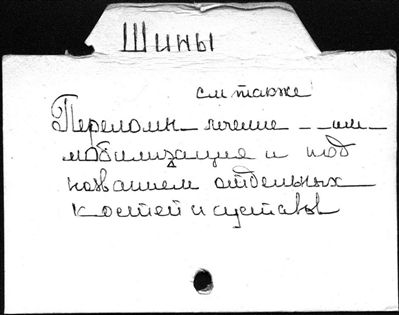 Шины
см также
Переломы – лечение – – им–
мобилизация и под
названием отдельных
костей и суставов